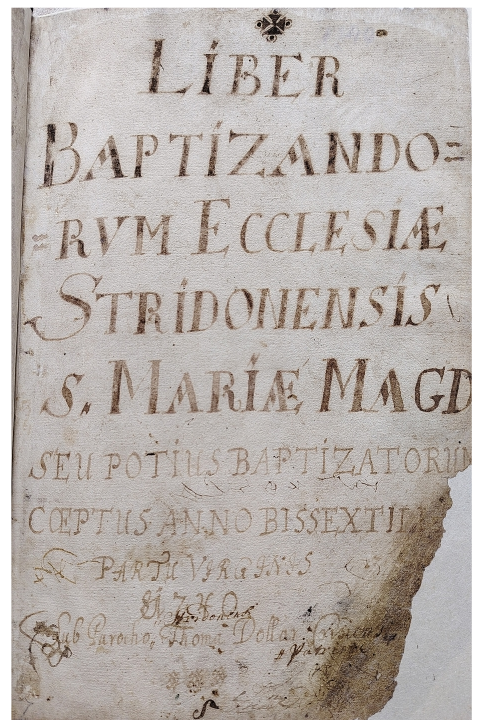 LIBER
BAPTIZANDO=
=RVM ECCLESIÆ
STRIDONENSIS
S. MARIÆ MAGD
SEU POTIUS BAPTIZATORUM
CŒPTUS ANNO BISSEXTIL
PARTU VIRGINIS
Sub Parocho, Thoma Dollar